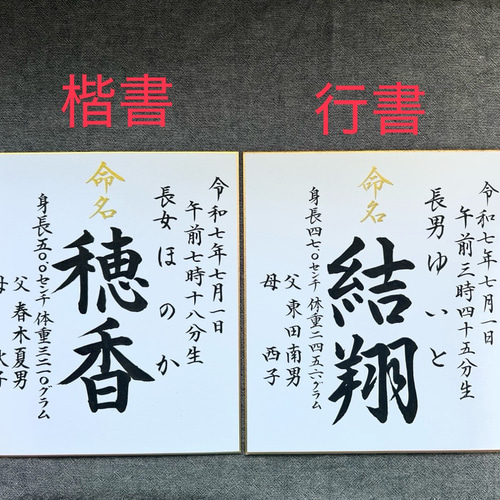 楷書
行書
命名
令和七年七月一日
午前七時十八分生
長女ほのか
穂香
身長五〇.〇センチ 体重三三一〇グラム
父 春木夏男
母
子
命名
令和七年七月一日
午前三時四十五分生
長男ゆいと
結翔
身長四七.〇センチ 体重二四五六グラム
父 東田南男
母 西子